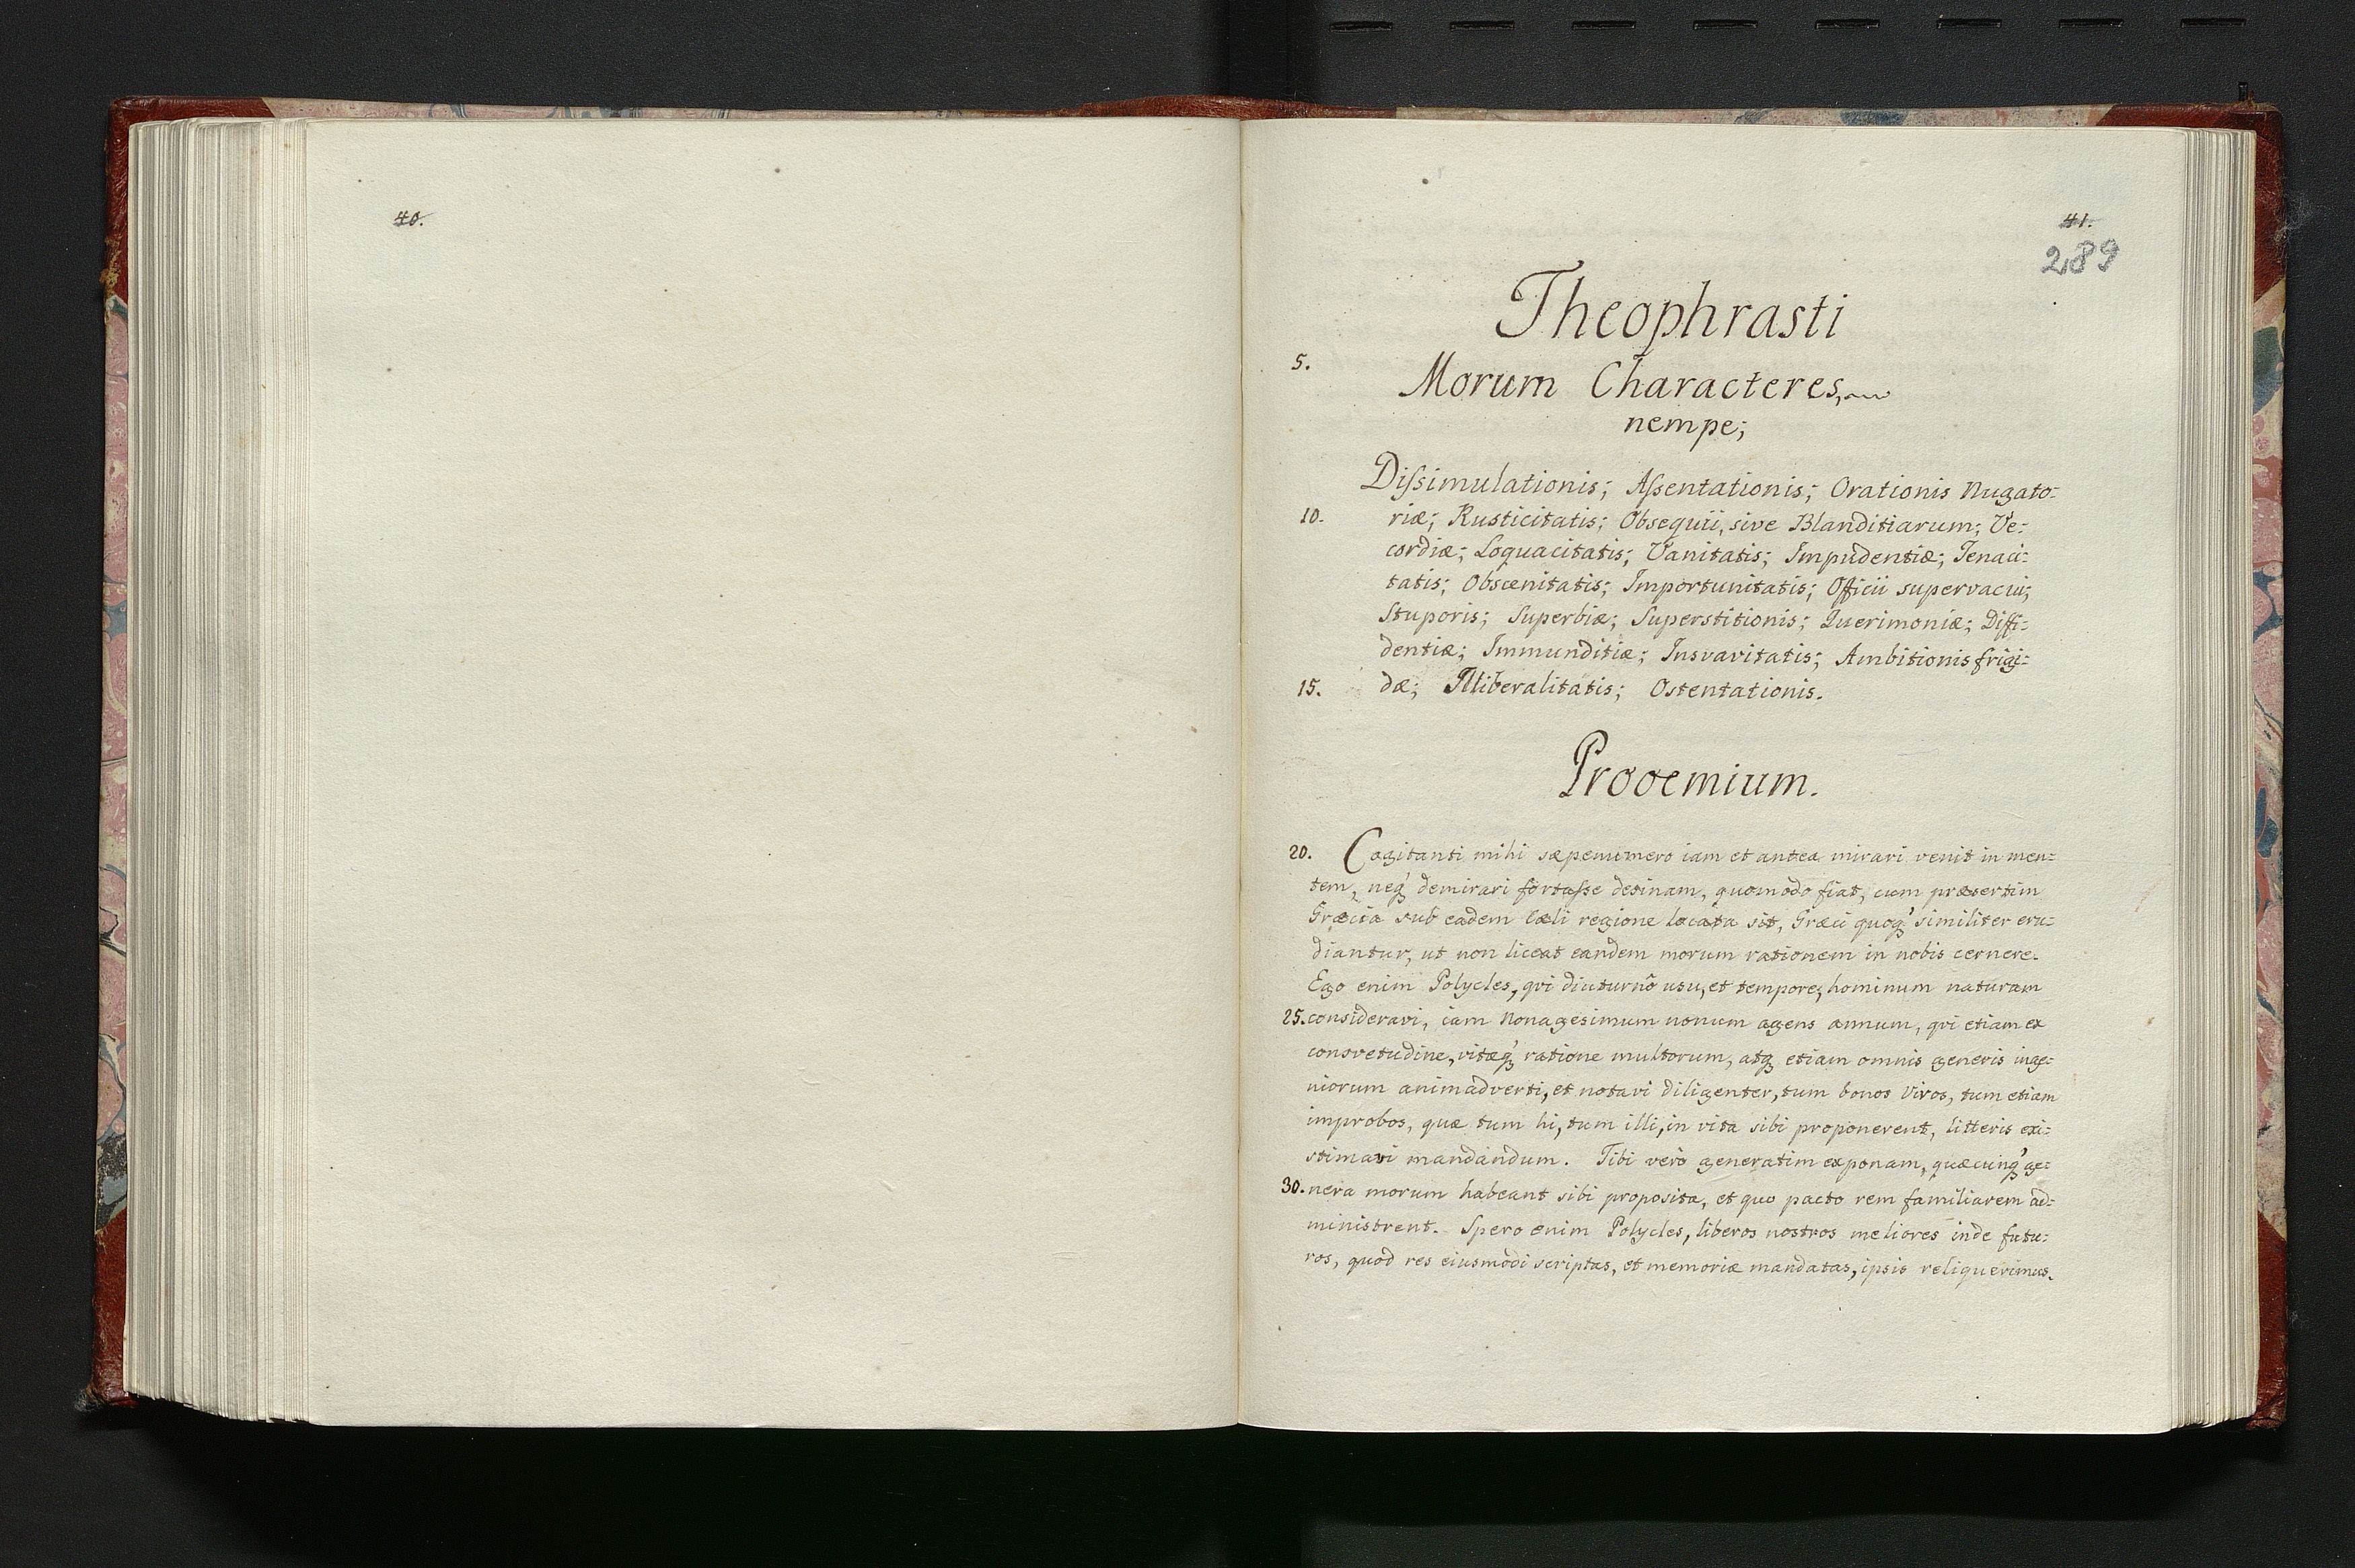 40.
41.
289
Theophrasti
5.
Morum Characteres,
nempe;
Dissimulationis; Assentationis; Orationis Nugato:
10. riæ; Rusticitatis; Obsequii, sive Blanditiarum; Ve:
cordiæ; Loquacitatis; Vanitatis; Impudentiæ; Tenaci:
tatis; Obscœnitatis; Importunitatis; Officii supervacui;
Stuporis; Superbiæ; Superstitionis; Querimoniæ; Diffi:
dentiæ; Immunditiæ; Insvavitatis; Ambitionis frigi:
15. dæ; Illiberalitatis; Ostentationis.
Prooemium.
20. Cogitanti mihi sæpenumero iam et antea mirari venit in men:
tem, neq́ꝫ demirari fortasse desinam, quomodo fiat, cum præsertim
Græcia sub eadem cæli regione locata sit, Græci quoq́ꝫ similiter eru:
diantur, ut non liceat eandem morum rationem in nobis cernere.
Ego enim Polycles, qvi diuturnô usu, et tempore, hominum naturam
25. consideravi, iam Nonagesimum nonum agens annum, qvi etiam ex
consvetudine, vitæq́ꝫ ratione multorum, atqꝫ etiam omnis generis inge:
niorum animadverti, et notavi diligenter, tum bonos Viros, tum etiam
improbos, quæ tum hi, tum illi, in vita sibi proponerent, litteris exi:
stimavi mandandum. Tibi verò generatim exponam, quæcunq́ꝫ ge:
30. nera morum habeant sibi proposita, et quo pacto rem familiarem ad:
ministrent. Spero enim Polycles, liberos nostros meliores inde futu:
ros, quod res eiusmodi scriptas, et memoriæ mandatas, ipsis reliquerimus.